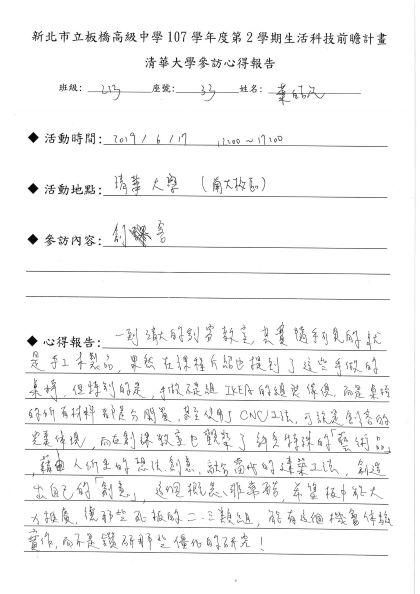 新北市立板橋高級中學 107 學年度第 2 學期生活科技前瞻計畫
清華大學參訪心得報告
班級：213 座號：33 姓名：葉
◆ 活動時間：2019 / 6 / 17 1200 ~ 17:00
◆ 活動地點：清華大學 (南大校區)
◆ 參訪內容：創客
◆ 心得報告：一到清大的創客教室,其實隨手可見的就
是手工木製品,果然在課程介紹也提到了這些手做的
桌椅,但特別的是,手做不是組IKEA的組裝傢俱,而是桌椅
的所有材料都是分開置,甚至使用了CNC工法,可說是創客的
完美体現,而在創課教室也觀察了許多特殊的「藝術品」
藉由人所生的想法、創意,融合當代的建築工法,創造
出自己的「創意」,這個概念非常酷,希望板中能大
力推廣,使那些死板的二、三類組,能有這個機會体驗
實作,而不是鑽研那些僵化的研究!